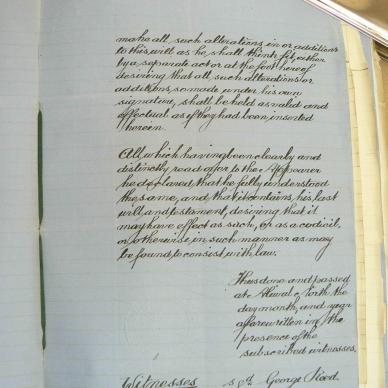 make all such alterations in or additions
to this will as he shall think fit, either
by a separate act or at the foot hereof
desiring that all such alterations or
additions, so made under his own
signature, shall be held as valid and
effectual as if they had been inserted
herein.
All which having been clearly and
distinctly read over to the Appearer
he declared that he fully understood
the same, and that it contains, his last
will and testament, desiring that it
may have effect as such, or as a codicil,
or otherwise in such manner as may
be found to consist with law.
Thus done and passed
at North the
day month, and year
aforewritten in the
presence of the
subscribed witnesses.
Witnesses George